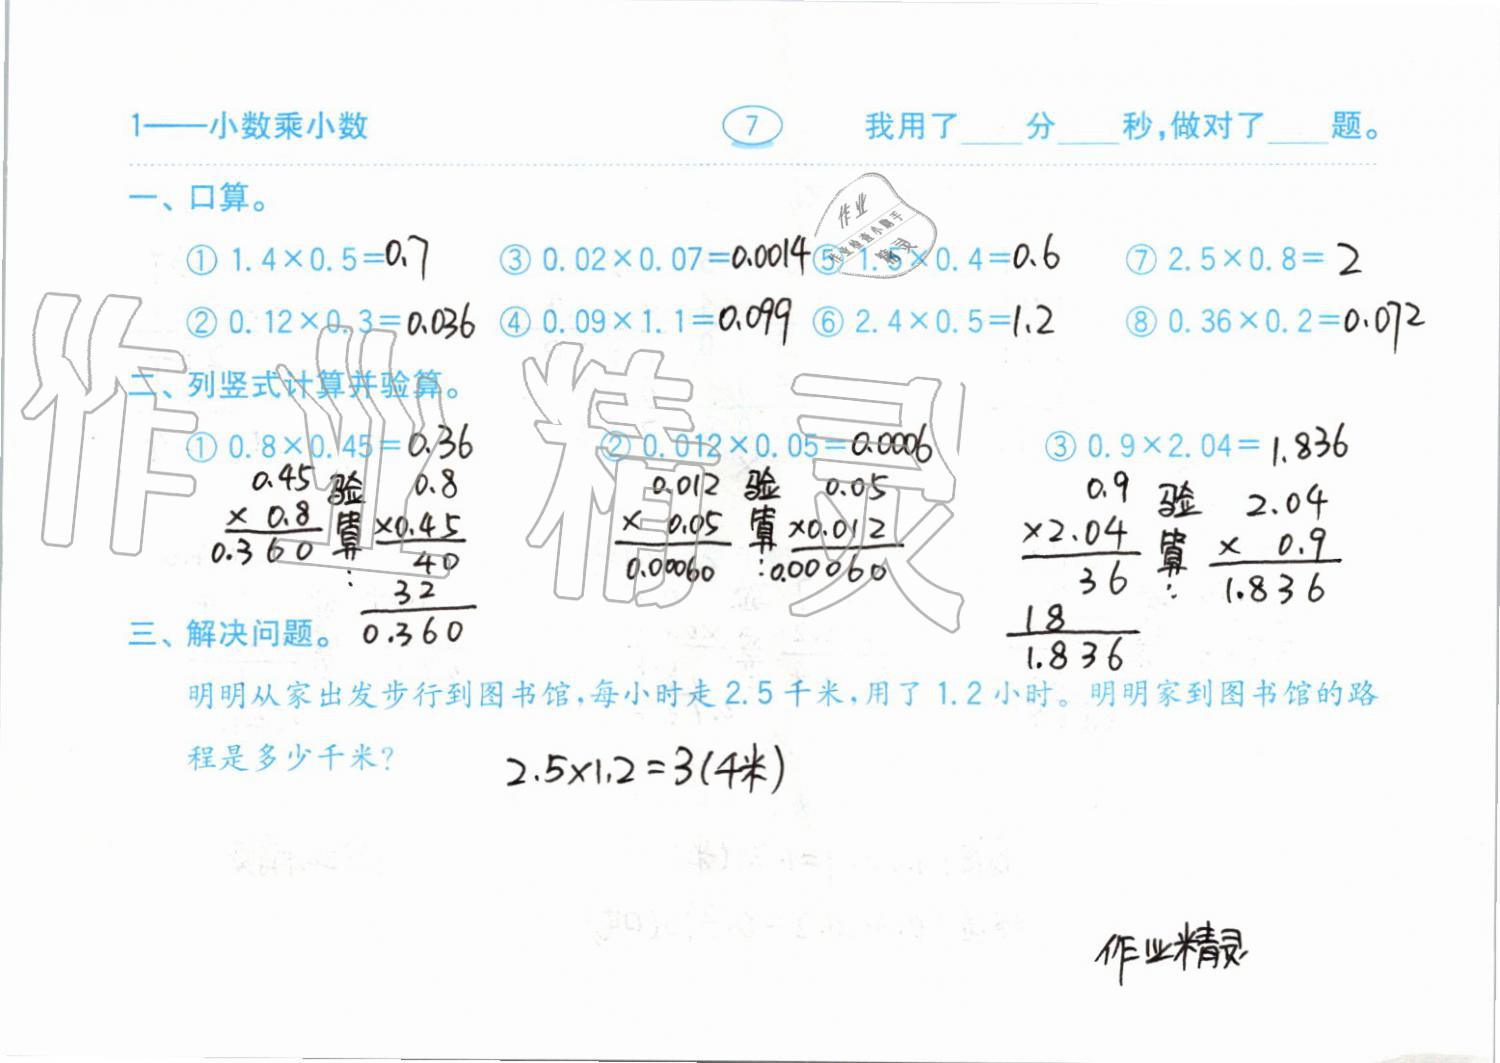 1——小数乘小数 7 我用了____分____秒,做对了____题。
一、口算。
① 1.4×0.5=0.7 ③ 0.02×0.07=0.0014 ⑤ 1.5×0.4=0.6 ⑦ 2.5×0.8=2
② 0.12×0.3=0.036 ④ 0.09×1.1=0.099 ⑥ 2.4×0.5=1.2 ⑧ 0.36×0.2=0.072
作业
精灵
作业精灵
二、列竖式计算并验算。
① 0.8×0.45=0.36 ② 0.012×0.05=0.0006 ③ 0.9×2.04=1.836
0.45 验 0.8 0.012 验 0.05 0.9 验 2.04
× 0.8 算: ×0.45 × 0.05 算: ×0.012 ×2.04 算: × 0.9
0.360 40 0.00060 0.00060 36 1.836
32 18
三、解决问题。 0.360 1.836
明明从家出发步行到图书馆,每小时走2.5千米,用了1.2小时。明明家到图书馆的路
程是多少千米? 2.5×1.2=3(4米)
作业精灵